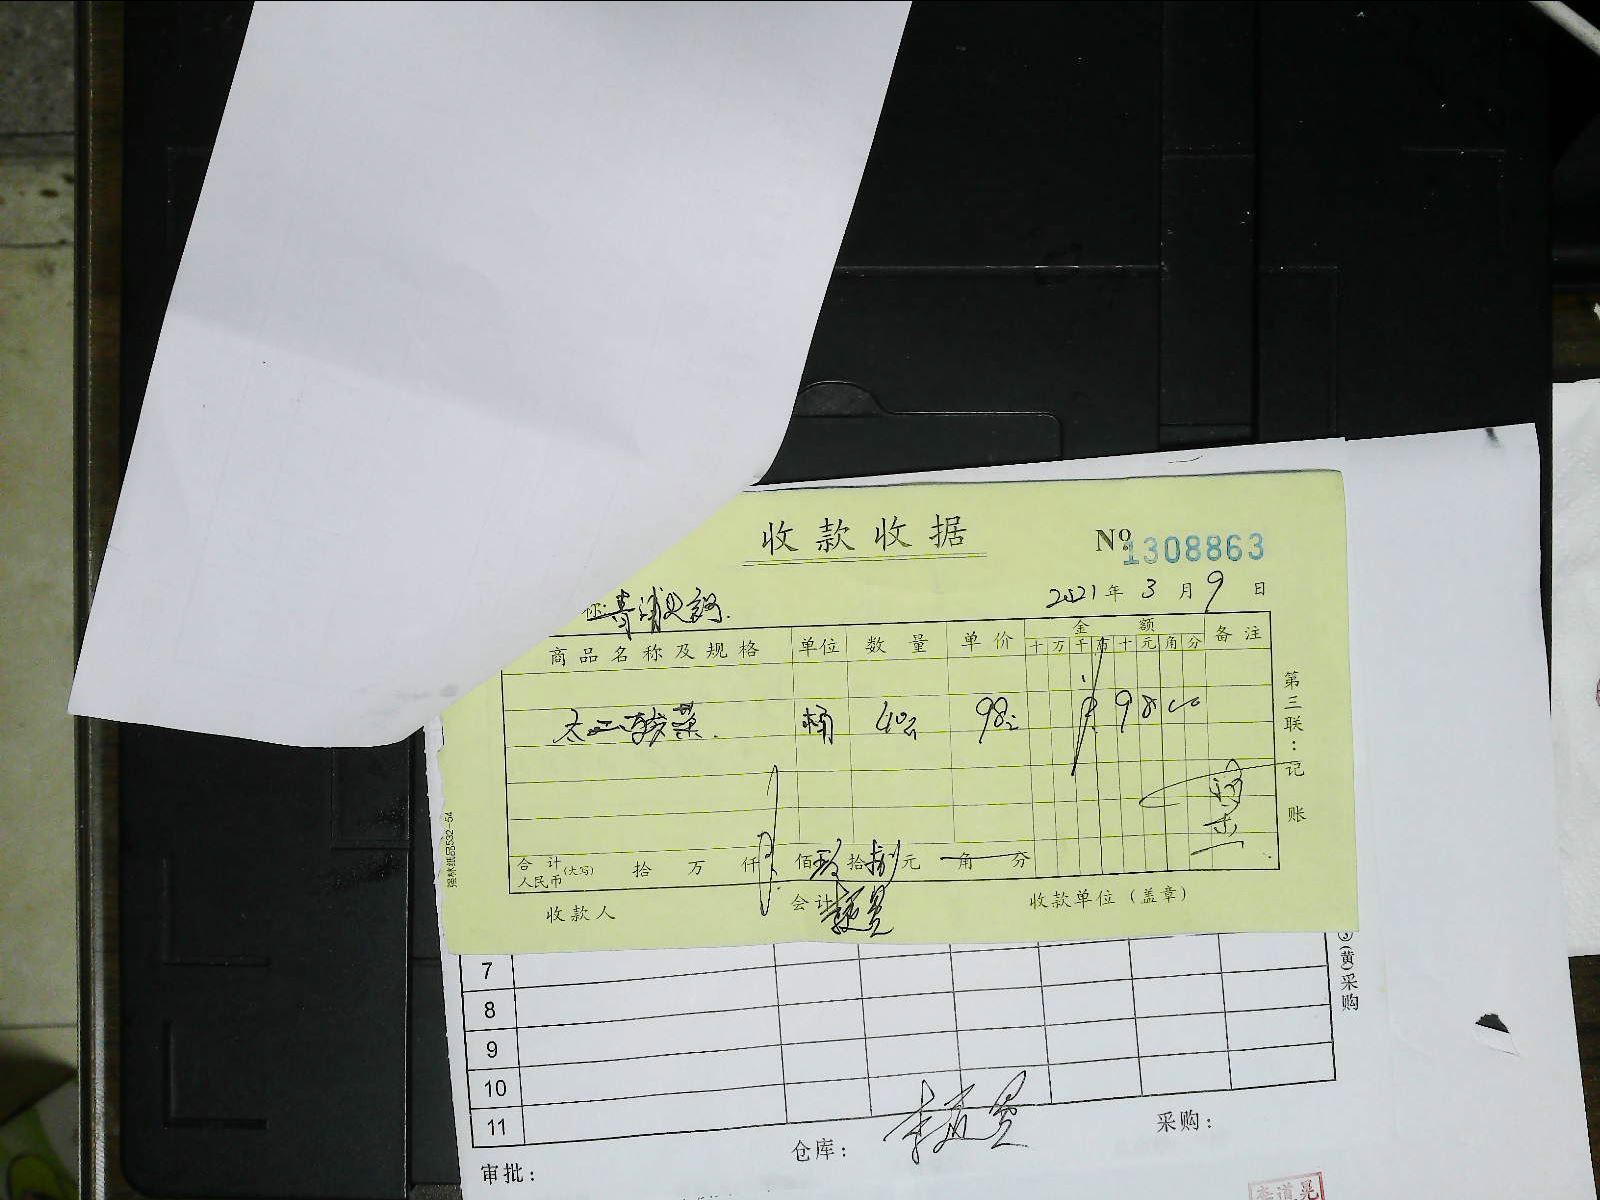 收款收据
No 1308863
2021年3月9日
商品名称及规格 单位 数量 单价 金额 备注
十万千百十元角分
太二酸菜 桶 98
9800
合计人民币(大写) 拾万仟佰玖拾捌元角分
收款人 会计 收款单位(盖章)
第三联:记账
7
8
9
10
11
(黄)采购
仓库: 采购:
审批:
李道晃